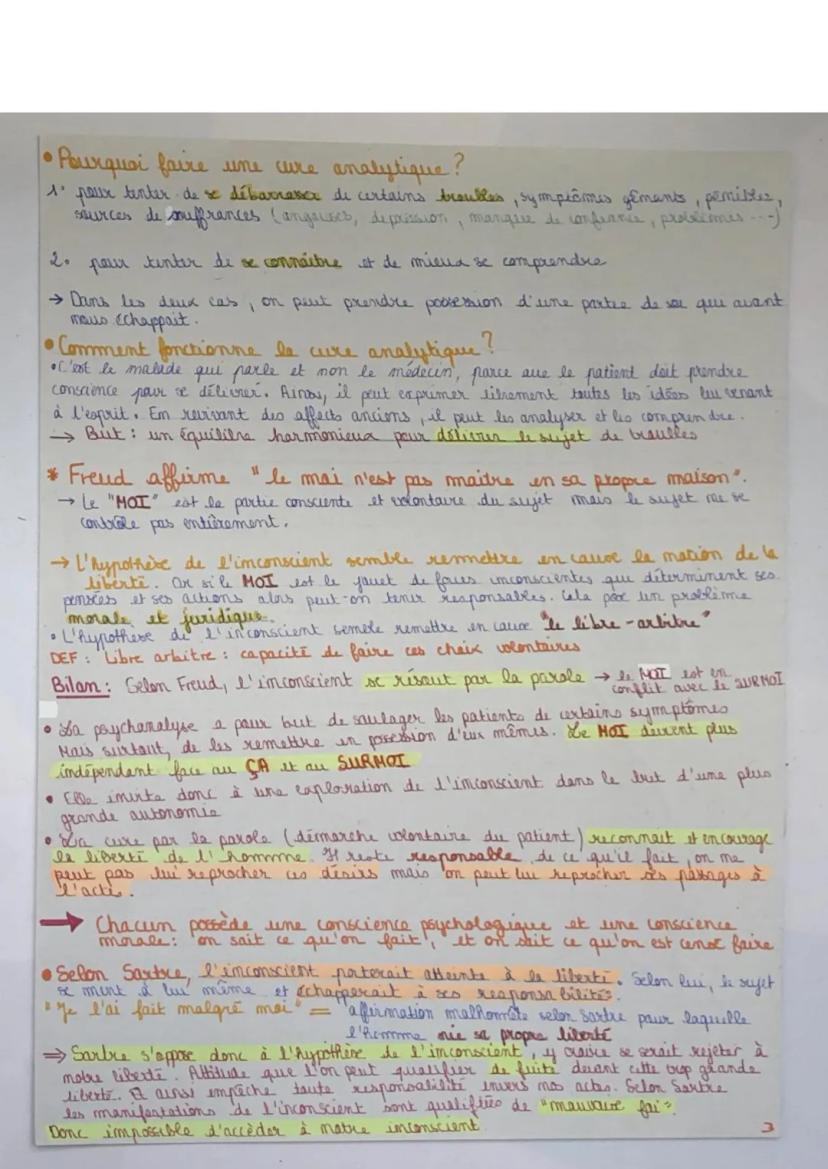 • Pourquoi faire une cure analytique ?
1° pour tenter de se débarrasser de certains troubles, symptômes gênants, pénibles,
sources de souffrances (angoisses, dépression, manque de confiance, problèmes ...)
2. pour tenter de se connaître et de mieux se comprendre
→ Dans les deux cas, on peut prendre possession d'une partie de soi qui avant
nous échappait.
• Comment fonctionne la cure analytique ?
• C'est le malade qui parle et non le médecin, parce que le patient doit prendre
conscience pour se délivrer. Ainsi, il peut exprimer librement toutes les idées lui venant
à l'esprit. En revivant des affects anciens, il peut les analyser et les comprendre.
→ But : un équilibre harmonieux pour délivrer le sujet de troubles
* Freud affirme " le moi n'est pas maitre en sa propre maison".
→ Le "MOI" est la partie consciente et volontaire du sujet mais le sujet ne se
contrôle pas entièrement.
→ L'hypothèse de l'inconscient semble remmettre en cause la notion de la
liberté. Or si le MOI est le jouet de forces inconscientes qui déterminent ses
pensées et ses actions alors peut-on tenir responsables. Cela pose un problème
morale et juridique.
• L'hypothèse de l'inconscient semble remettre en cause "le libre-arbitre"
DEF : Libre arbitre : capacité de faire ces choix volontaires
Bilan : Selon Freud, l'inconscient se résout par la parole → le MOI est en
conflit avec le SURMOI
• La psychanalyse a pour but de soulager les patients de certains symptômes
Mais surtout, de les remettre en possession d'eux mêmes. Le MOI devient plus
indépendant face au ÇA et au SURMOI
• Elle invite donc à une exploration de l'inconscient dans le but d'une plus
grande autonomie
• La cure par la parole (démarche volontaire du patient) reconnait et encourage
la liberté de l'homme. Il reste responsable de ce qu'il fait, on ne
peut pas lui reprocher ces désirs mais on peut lui reprocher ses passages à
l'acte.
→ Chacun possède une conscience psychologique et une conscience
morale : on sait ce qu'on fait, et on sait ce qu'on est censé faire
• Selon Sartre, l'inconscient porterait atteinte à la liberté. Selon lui, le sujet
se ment à lui même et échapperait à ses responsabilités.
"Je l'ai fait malgré moi" = affirmation malhonnête selon Sartre pour laquelle
l'homme nie sa propre liberté
⇒ Sartre s'oppose donc à l'hypothèse de l'inconscient, y croire se serait rejeter à
notre liberté. Attitude que l'on peut qualifier de fuite devant cette trop grande
liberté. Et ainsi empêche toute responsabilité envers nos actes. Selon Sartre
les manifestations de l'inconscient sont qualifiées de "mauvaise foi".
Donc impossible d'accéder à notre inconscient
3